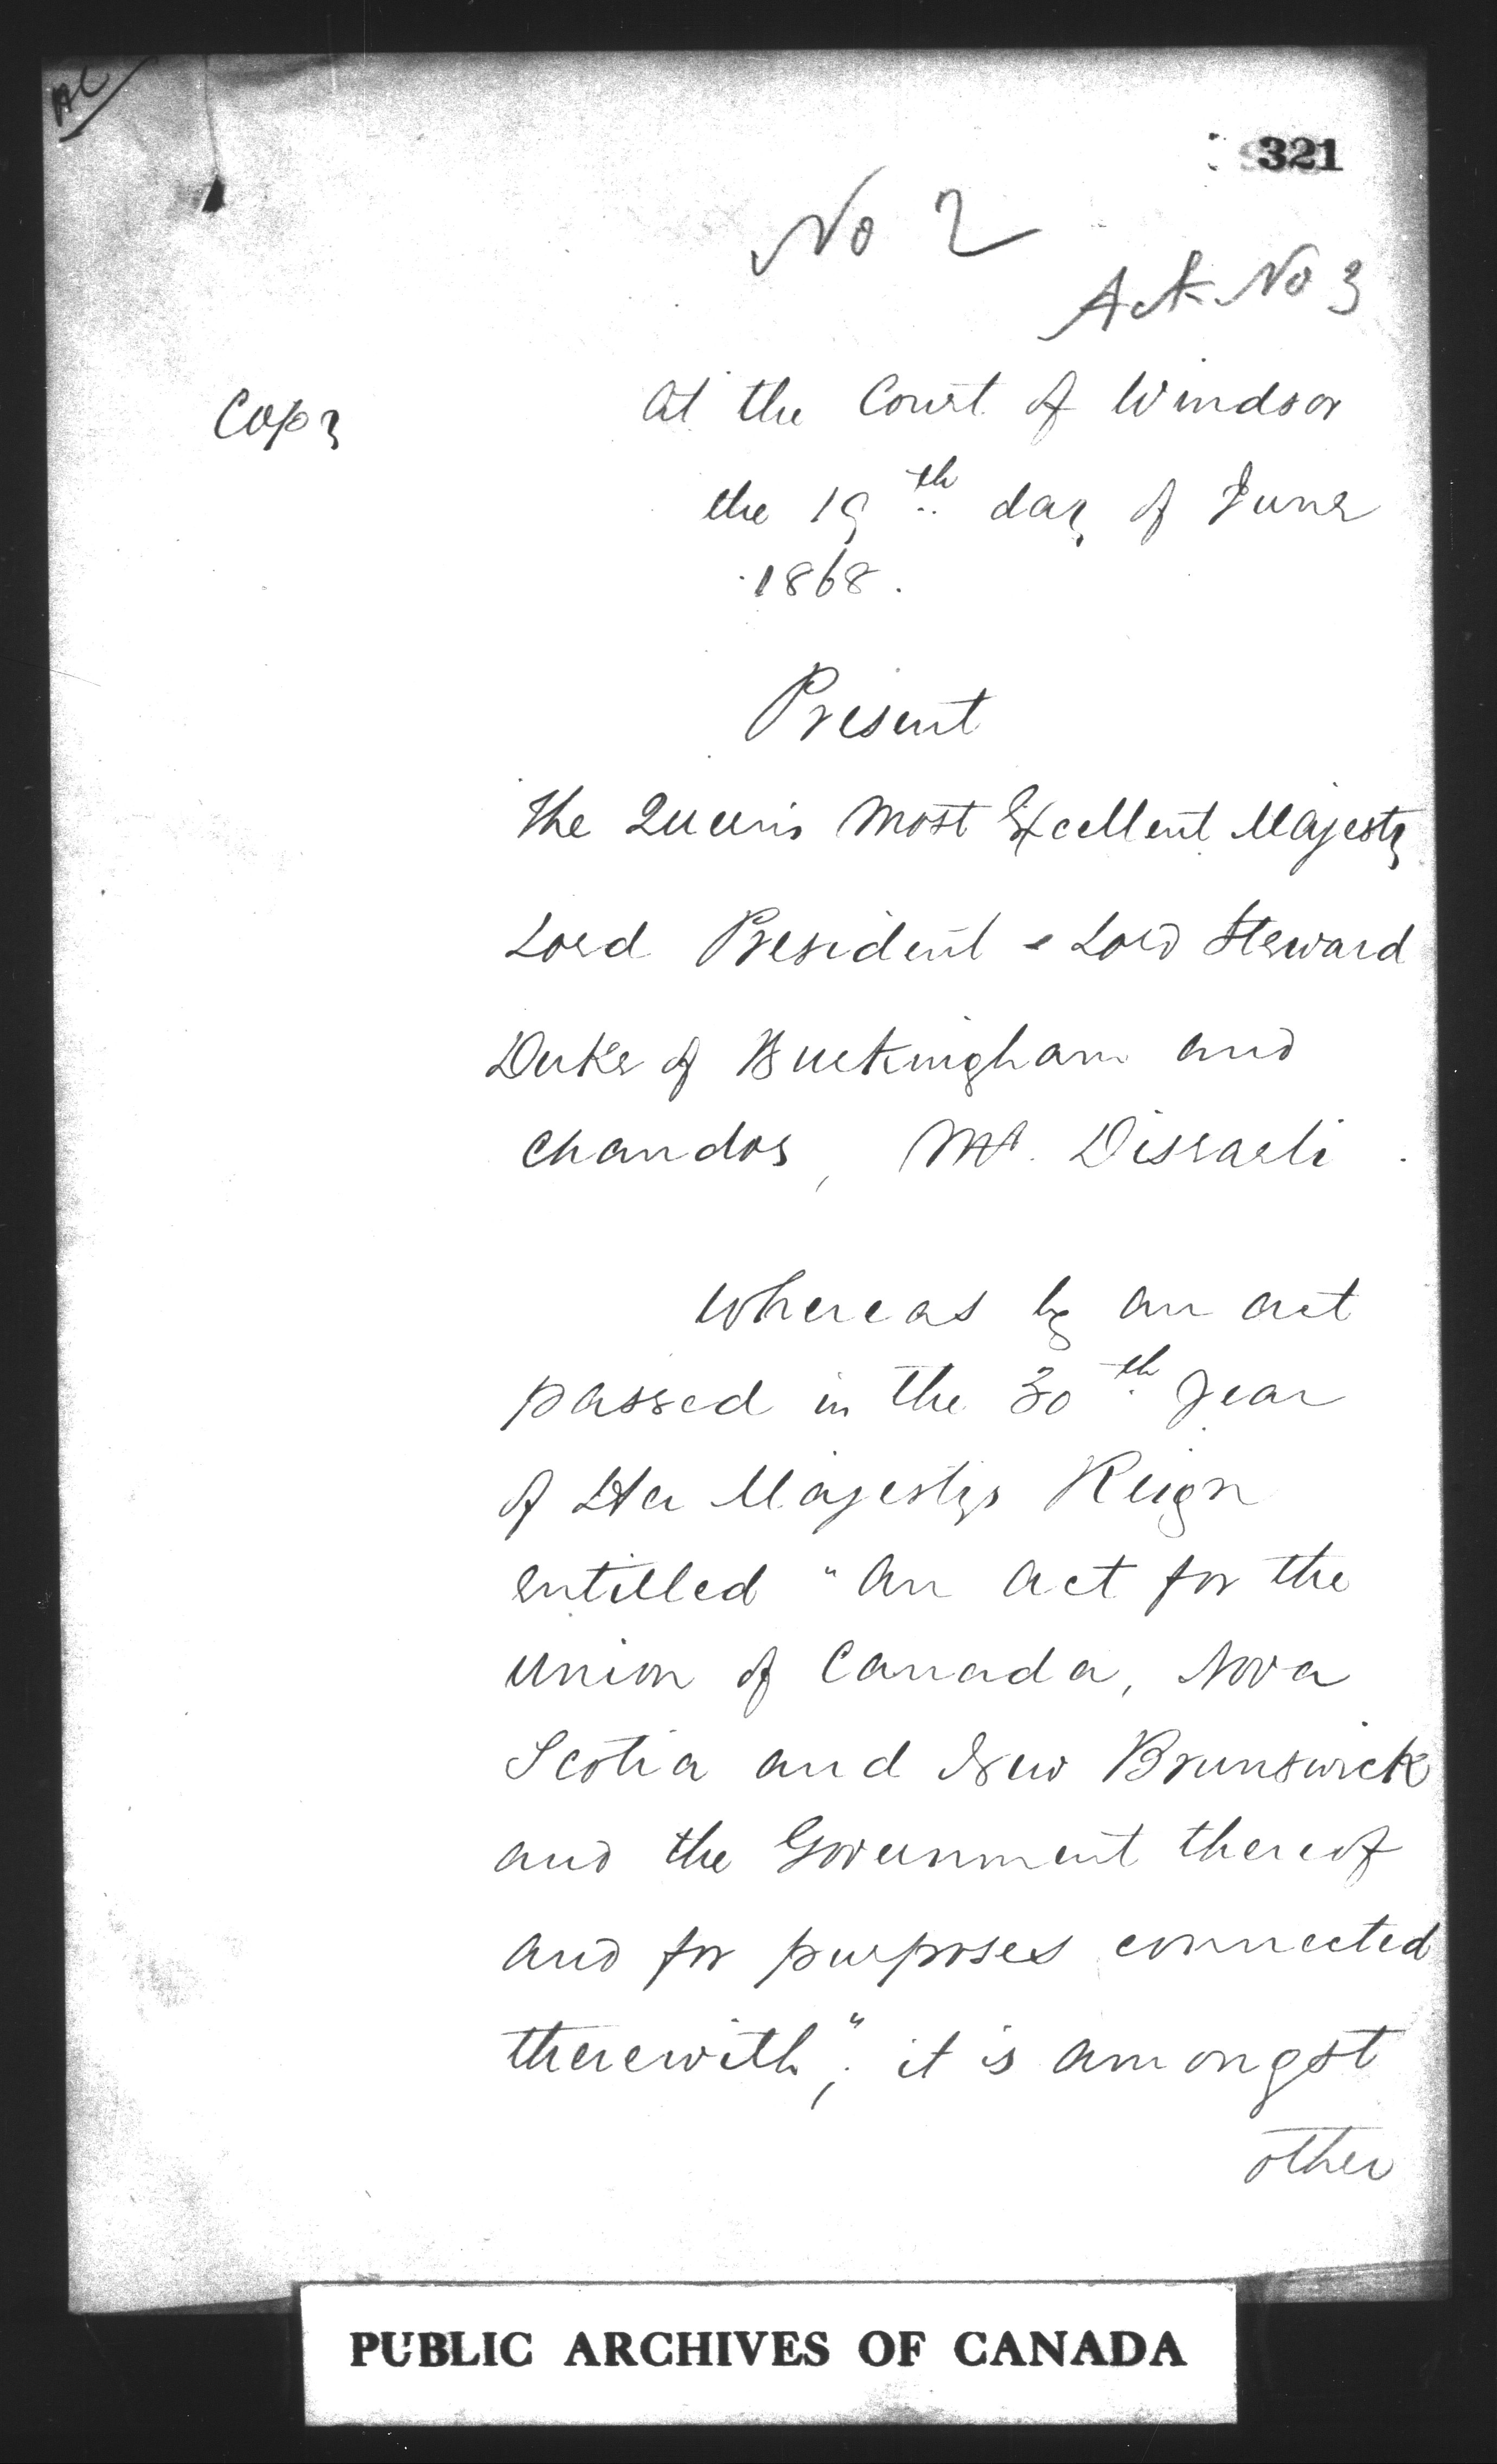 AC
321
No 2
Ack No 3
Copy
At the Court of Windsor
the 19th day of June
1868.
Present
The Queen's Most Excellent Majesty
Lord President & Lord Steward
Duke of Buckingham and
Chandos, Mr. Disraeli.
Whereas by an act
passed in the 30th year
of Her Majestys Reign
entitled "An act for the
Union of Canada, Nova
Scotia and New Brunswick
and the Government thereof
and for purposes connected
therewith"; it is amongst
other
PUBLIC ARCHIVES OF CANADA